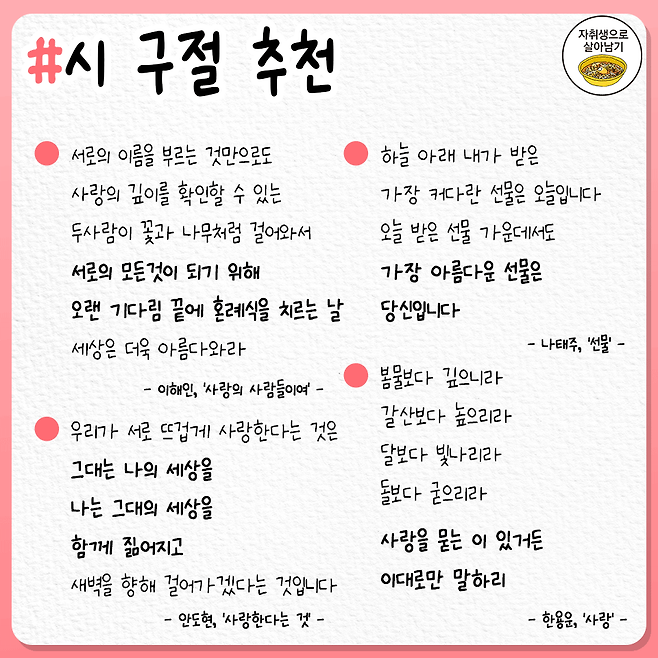 #시 구절 추천
자취생으로
살아남기
서로의 이름을 부르는 것만으로도
사랑의 깊이를 확인할 수 있는
두사람이 꽃과 나무처럼 걸어와서
서로의 모든것이 되기 위해
오랜 기다림 끝에 혼례식을 치르는 날
세상은 더욱 아름다와라
- 이해인, '사랑의 사람들이여' -
우리가 서로 뜨겁게 사랑한다는 것은
그대는 나의 세상을
나는 그대의 세상을
함께 짊어지고
새벽을 향해 걸어가겠다는 것입니다
- 안도현, '사랑한다는 것' -
하늘 아래 내가 받은
가장 커다란 선물은 오늘입니다
오늘 받은 선물 가운데서도
가장 아름다운 선물은
당신입니다
- 나태주, '선물' -
봄물보다 깊으니라
갈산보다 높으리라
달보다 빛나리라
돌보다 굳으리라
사랑을 묻는 이 있거든
이대로만 말하리
- 한용운, '사랑' -